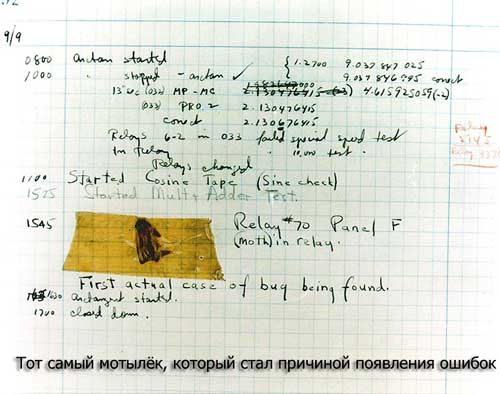 9/9
0800 antan started
1000 " stopped - antan ✓ { 1.2700 9.037 847 025
9.037 846 995 correct
13"uc (032) MP - MC 2.130476415 (-3) 4.615925059(-2)
(033) PRO 2 2.130476415
correct 2.130676415
Relays 6-2 in 033 failed special speed test
In Relay " 10,000 test.
Relay
Relays changed
1100 Started Cosine Tape (Sine check)
1525 Started Mult + Adder Test.
1545 Relay #70 Panel F
(moth) in relay.
First actual case of bug being found.
1630 antangent started.
1700 closed down.
Тот самый мотылёк, который стал причиной появления ошибок